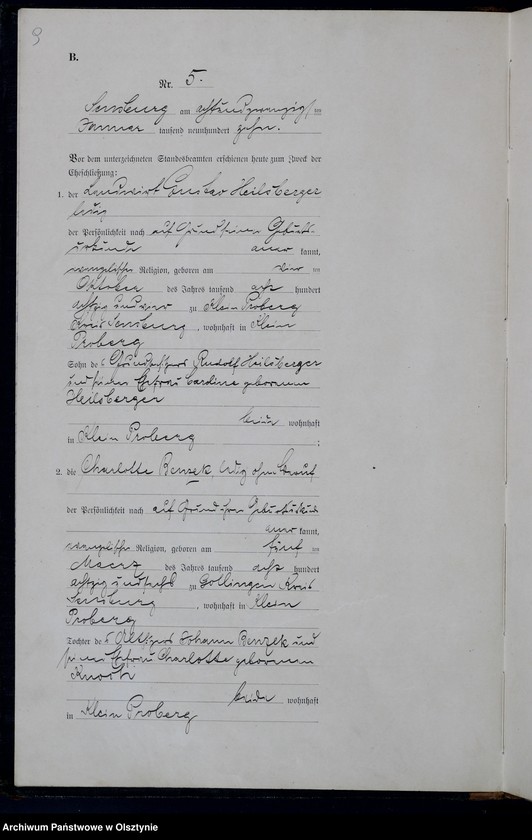 9
B.
Nr. 5.
Sensburg am achtundzwanzigsten
Januar tausend neunhundert zehn.
Vor dem unterzeichneten Standesbeamten erschienen heute zum Zweck der
Eheschließung:
1. der Landwirt Gustav Heilsberger
ledig
der Persönlichkeit nach auf Grund seiner Geburts-
urkunde aner kannt,
evangelischer Religion, geboren am vier ten
Oktober des Jahres tausend acht hundert
achtzig und vier zu Klein Proberg
Kreis Sensburg, wohnhaft in Klein
Proberg
Sohn des Grundbesitzers Rudolf Heilsberger
und seiner Ehefrau Caroline geborenen
Heilsberger
beide wohnhaft
in Klein Proberg ;
2. die Charlotte Benzek, ledig ohne Beruf
der Persönlichkeit nach auf Grund ihrer Geburtsurkunde
aner kannt,
evangelischer Religion, geboren am fünf ten
Maerz des Jahres tausend acht hundert
achtzig und sechs zu Gollingen Kreis
Sensburg, wohnhaft in Klein
Proberg
Tochter des Johann Benzek und
seiner Ehefrau Charlotte geborenen
beide wohnhaft
in Klein Proberg
Archiwum Państwowe w Olsztynie